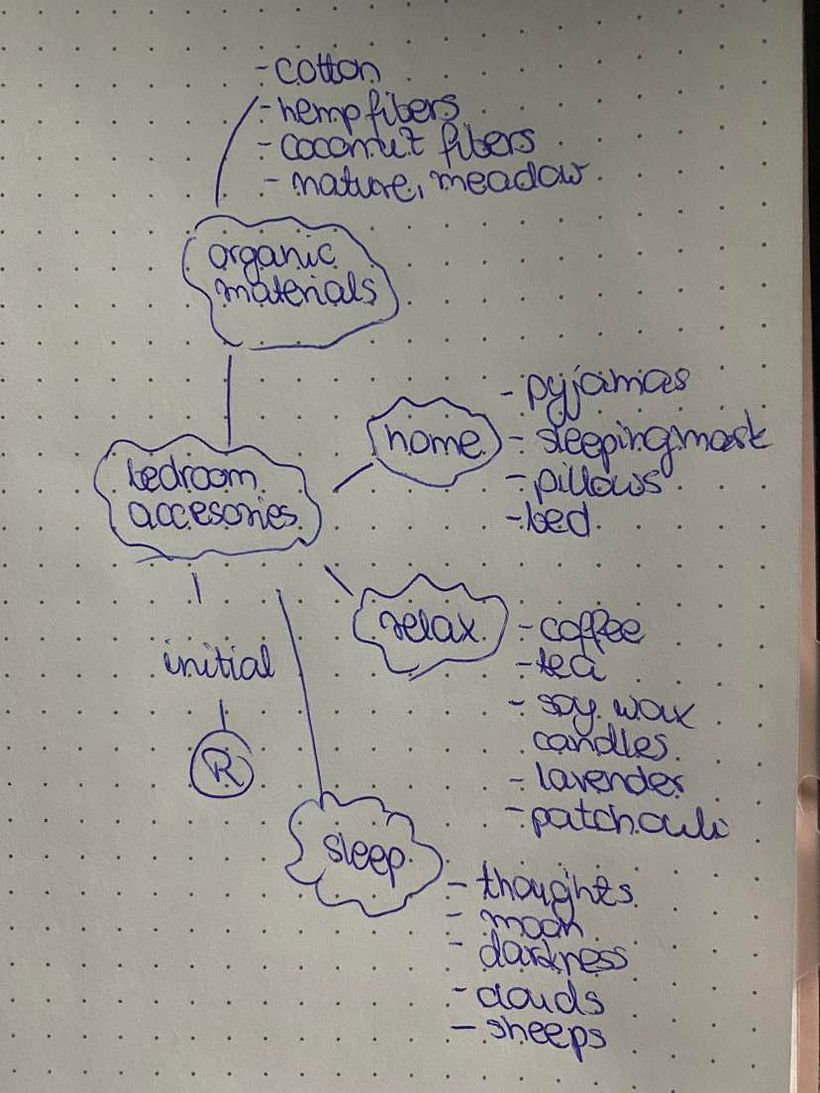 - cotton
- hemp fibers
- coconut fibers
- nature, meadow
organic
materials
- pyjamas
home
- sleeping mask
- pillows
- bed
bedroom
accesories
relax
- coffee
- tea
- soy wax
candles
- lavender
- patchouli
initial
R
sleep
- thoughts
- moon
- darkness
- clouds
- sheeps